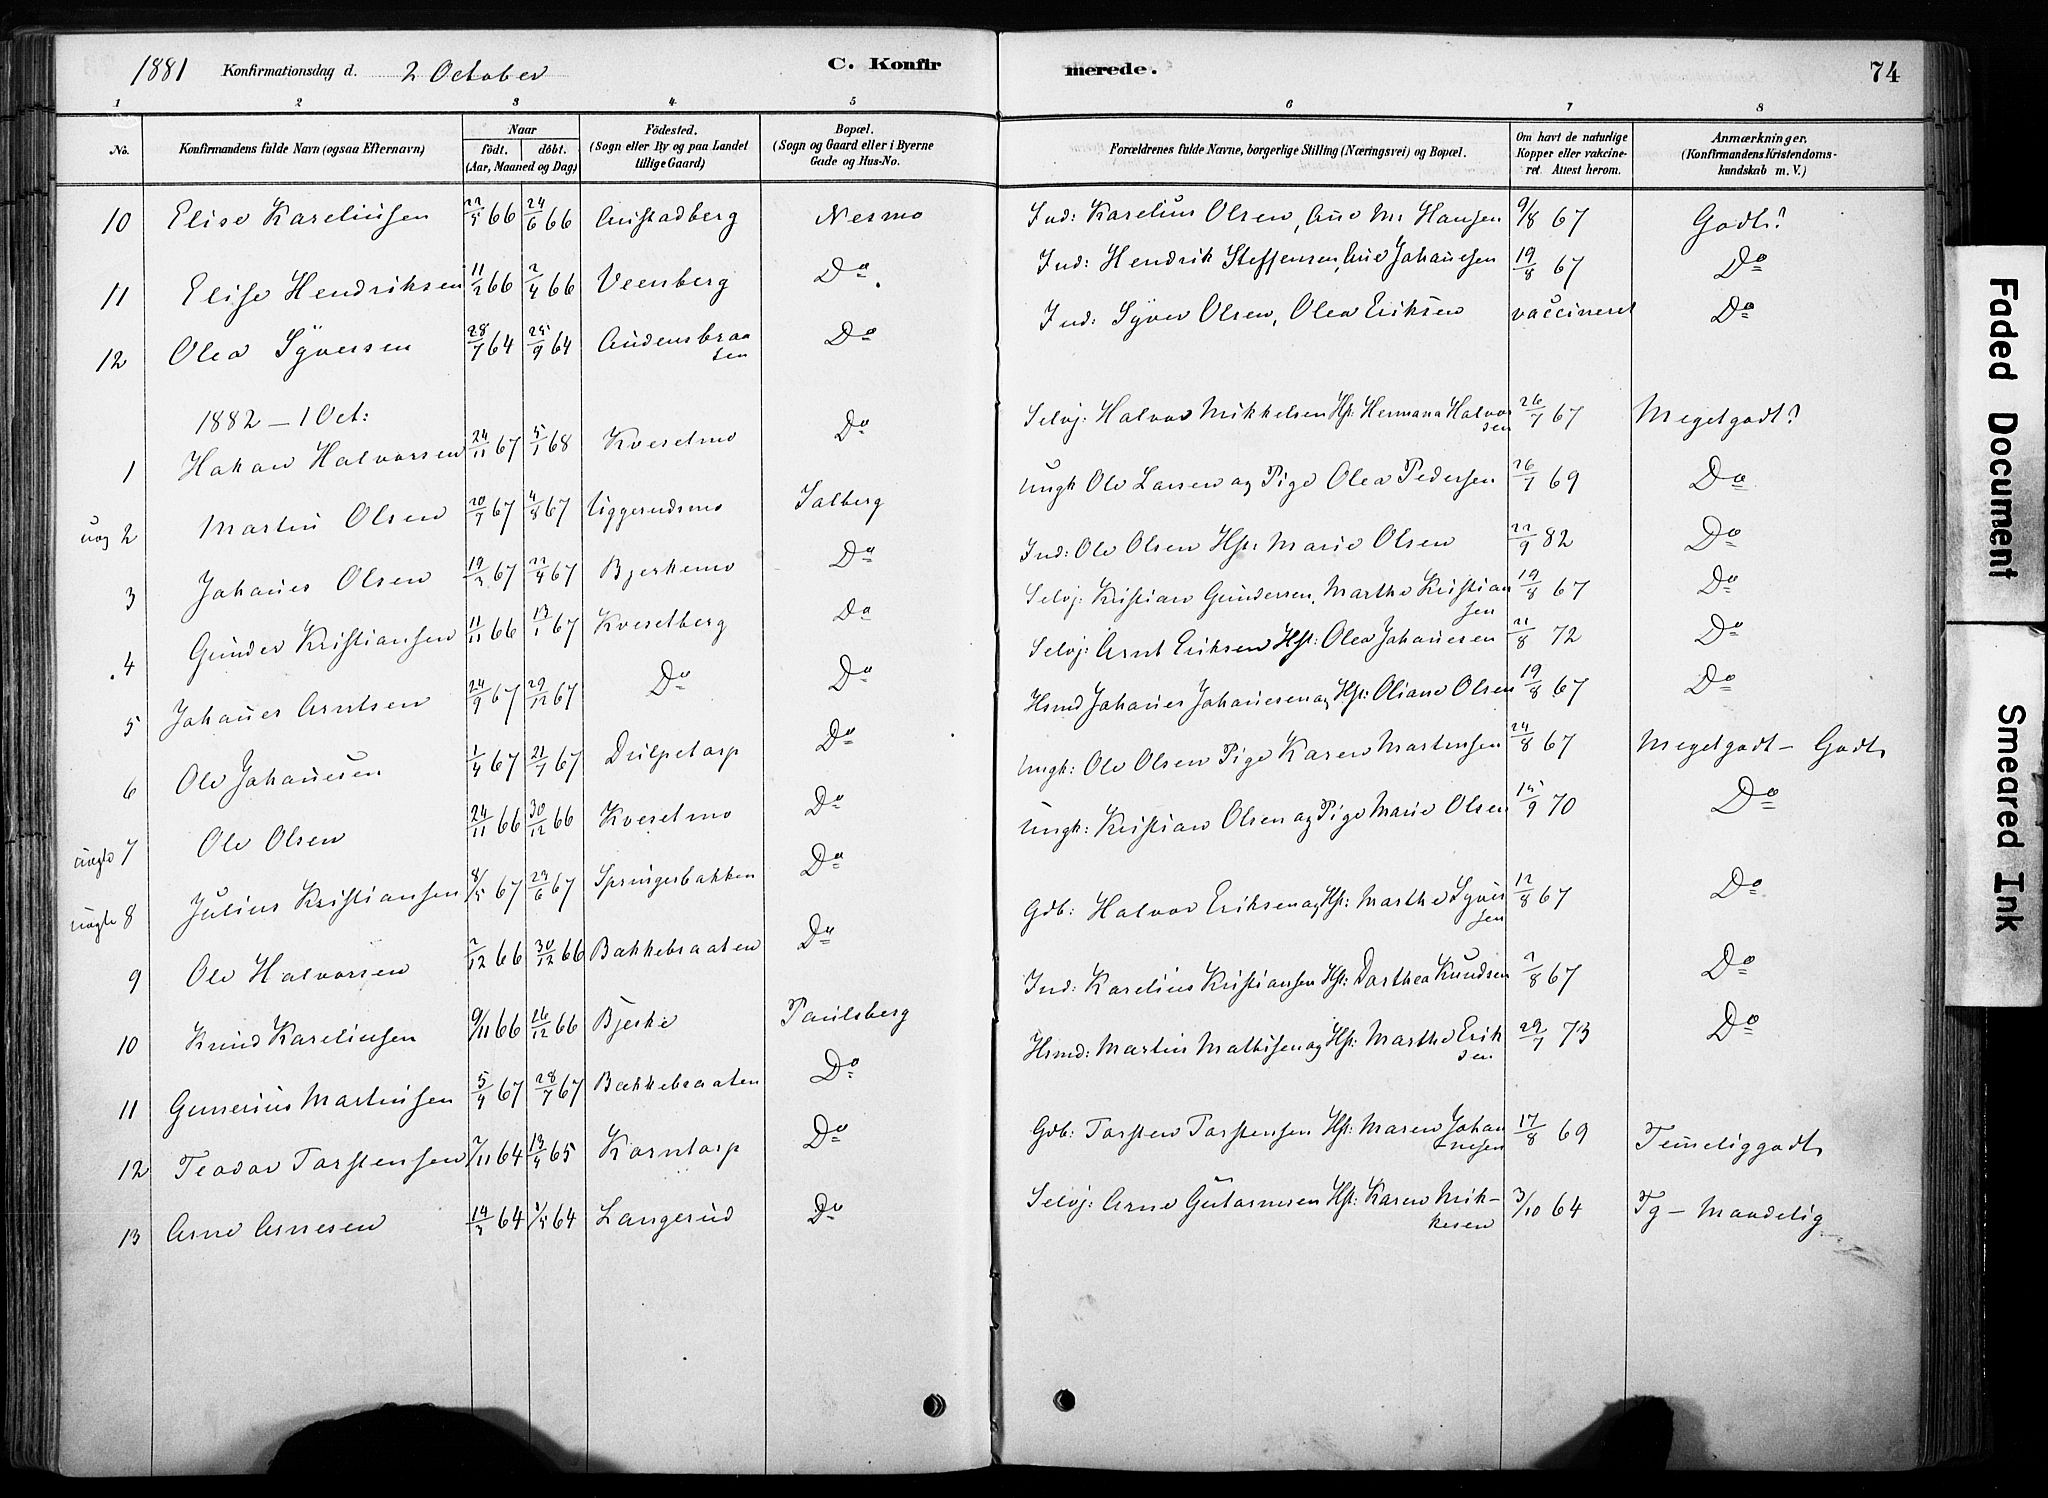 1881 Konfirmationsdag d. 2 October C. Konfirmerede. 74
1 2 3 4 5 6 7 8
No. Konfirmandens fulde Navn (ogsaa Efternavn) Naar födt. döbt. (Aar, Maaned og Dag) Födested. (Sogn eller By og paa Landet tillige Gaard) Bopæl. (Sogn og Gaard eller i Byerne Gade og Hus-No. Forældrenes fulde Navne, borgerlige Stilling (Næringsvei) og Bopæl. Om havt de naturlige Kopper eller vakcineret. Attest herom. Anmærkninger. (Konfirmandens Kristendomskundskab m. V.)
10 Elise Kareliussen 22/5 66 24/6 66 Austadberg Nesmo Ind: Karelius Olsen, Ane M. Hansen 9/8 67 Godt?
11 Elise Hendriksen 11/2 66 2/4 66 Veenberg Do Ind: Hendrik Steffensen, Ane Johannesen 19/8 67 Do
12 Olea Syversen 28/7 64 25/9 64 Audensbraasen Do Ind: Syver Olsen, Olea Eriksen vaccineret Do
1882 – 1 Oct:
1 Hakan Halvorsen 24/11 67 5/1 68 Kvesetmo Do Selvj: Halvor Mikkelsen Hst: Hermana Halvorsen 26/7 67 Megetgodt?
uæg 2 Martin Olsen 20/7 67 4/8 67 Uggerudsmo Salberg Ungk Ole Larsen og Pige Olea Pedersen 26/7 69 Do
3 Johanes Olsen 19/3 67 22/4 67 Bjerkemo Do Ind: Ole Olsen Hst: Marie Olsen 22/9 82 Do
4 Gunder Kristiansen 11/11 66 13/1 67 Kvesetberg Do Selvj: Kristian Gundersen, Marthe Kristiansen 19/8 67 Do
5 Johanes Arntsen 24/9 67 29/12 67 Do Do Selvj: Arnt Eriksen Hst: Olea Johanesen 21/8 72 Do
6 Ole Johanesen 1/4 67 21/7 67 Dulpetorp Do Hsmd Johanes Johanesen og Hst: Oliane Olsen 19/8 67 Do
uægte 7 Ole Olsen 24/11 66 30/12 66 Kvesetmo Do Ungk: Ole Olsen Pige Karen Martinsen 24/8 67 Megetgodt – Godt
uægte 8 Julius Kristiansen 8/5 67 23/6 67 Springerbakken Do Ungk: Kristian Olsen og Pige Marie Olsen 15/9 70 Do
9 Ole Halvorsen 2/12 66 30/12 66 Bakkebraaten Do Gdb: Halvor Eriksen og Hst: Marthe Syversen 12/8 67 Do
10 Knud Kareliusen 9/11 66 26/12 66 Bjerke Paulsberg Ind: Karelius Kristiansen Hst: Dorthea Knudsen 2/8 67 Do
11 Gunerius Martinsen 5/4 67 28/7 67 Bakkebraaten Do Hsmd: Martin Mathisen og Hst: Marthe Eriksen 29/7 73 Do
12 Teodor Torstensen 2/11 64 13/4 65 Korntorp Do Gdb: Torsten Torstensen Hst: Maren Johannesen 17/8 69 Temeliggodt
13 Arne Arnesen 14/3 64 1/5 64 Langerud Do Selvj: Arne Gutormsen Hst: Karen Mikkesen 3/10 64 Tg – Maadelig
Faded Document
Smeared Ink